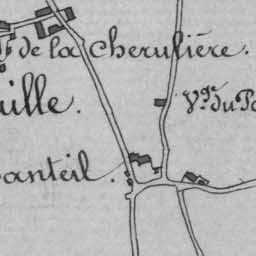 de la Cherulière.
ille.
Vgne du Pa
anteil.